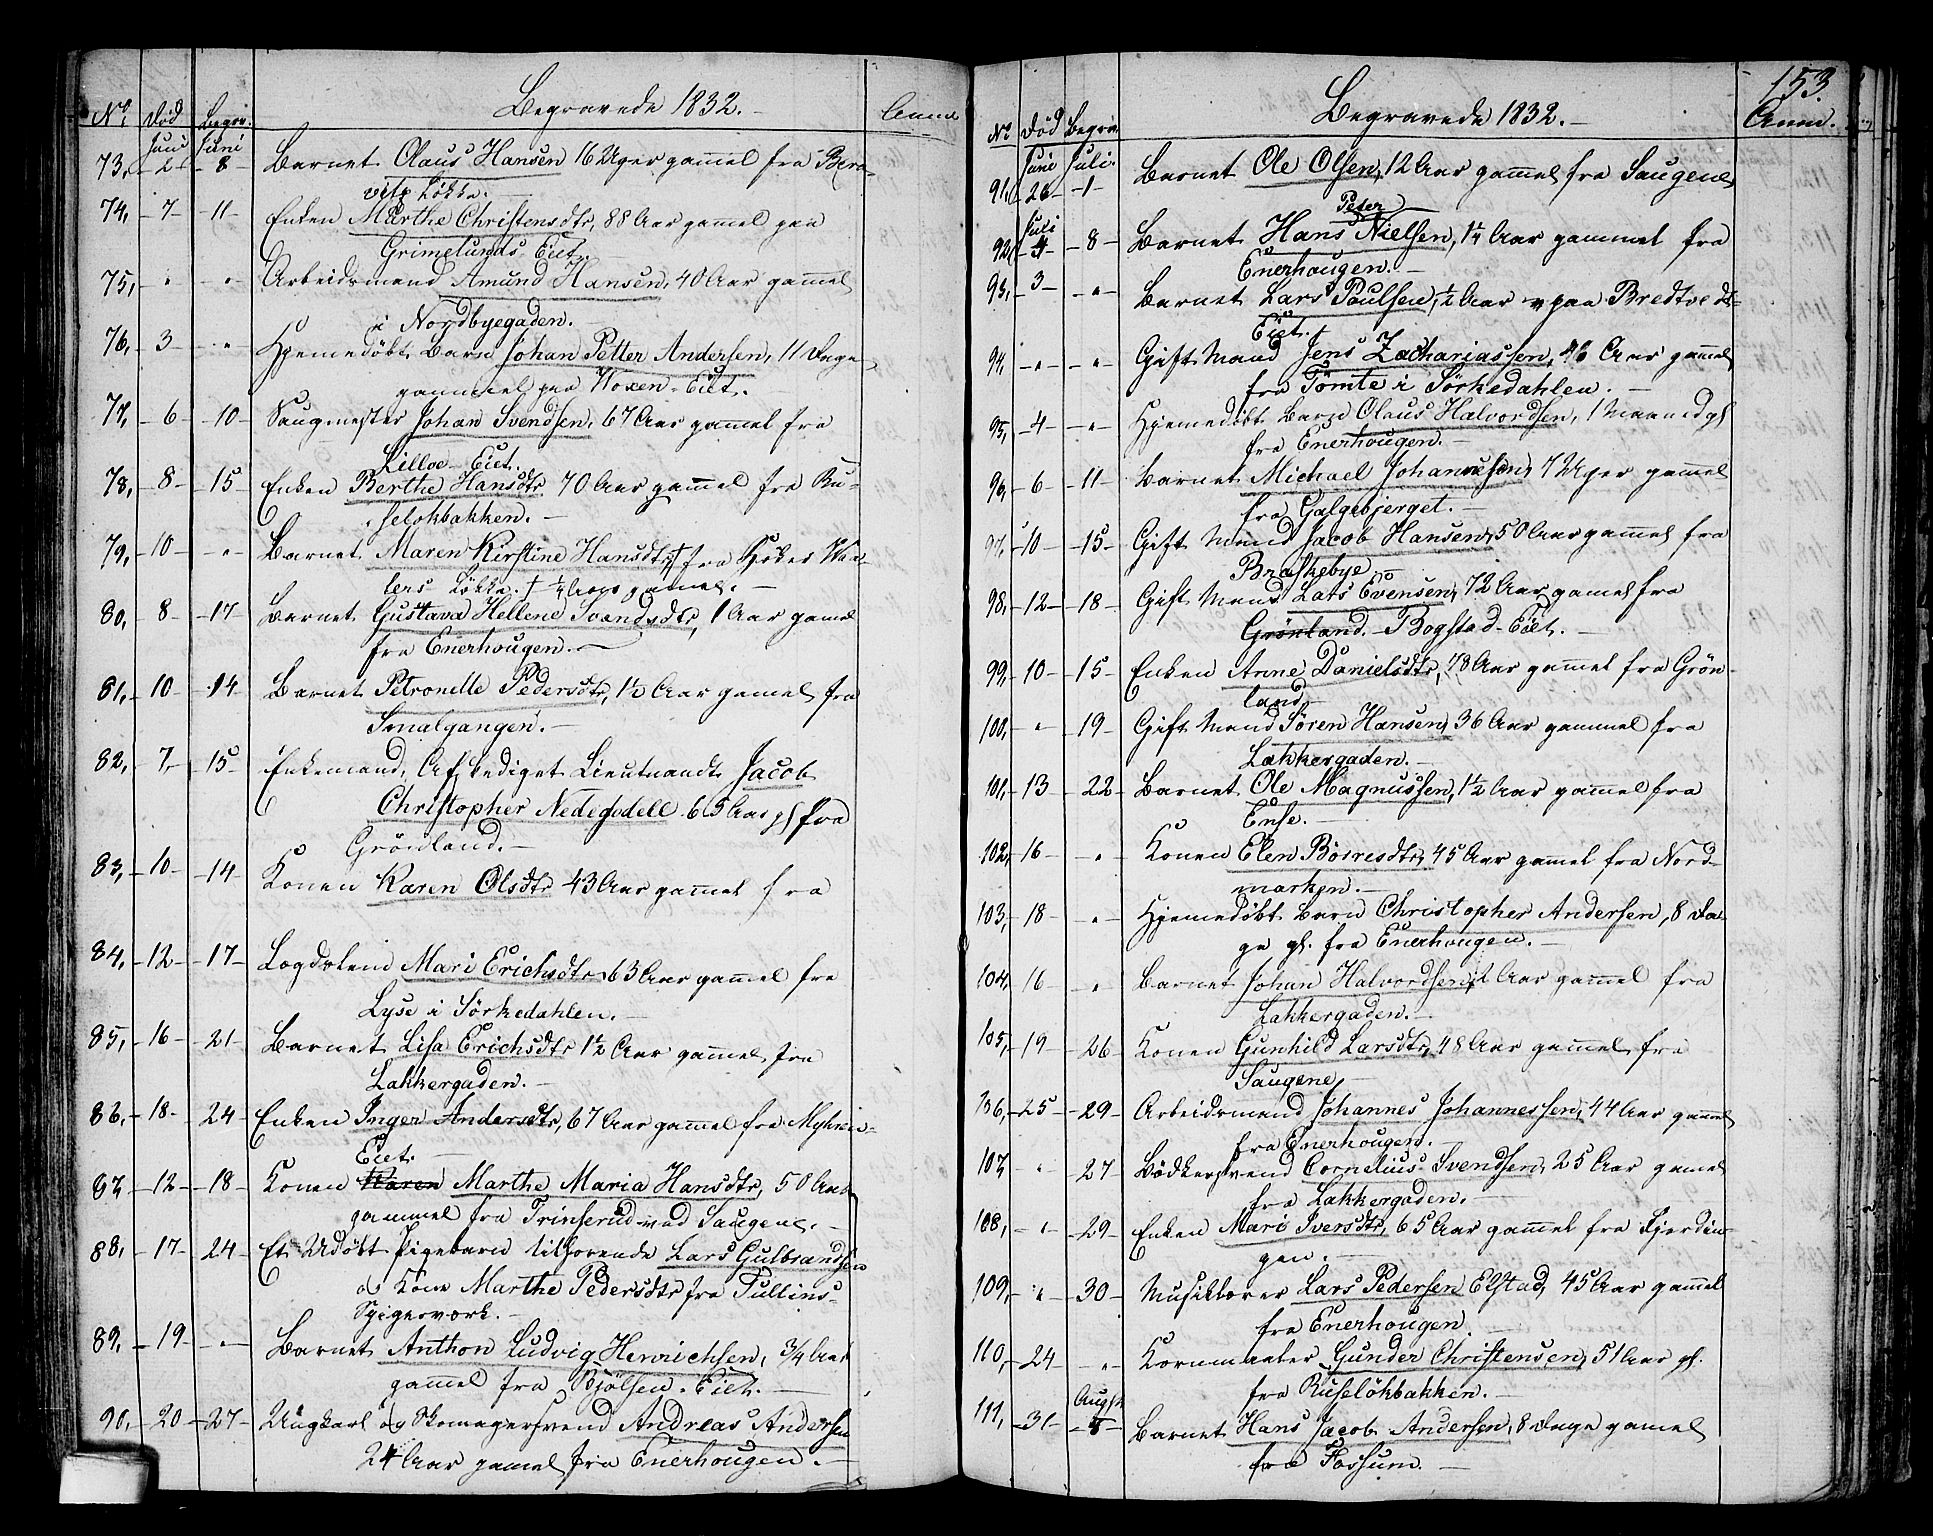 Begravede 1832.-
No. Død Begrv. Anm
Juni Juni
73, 2 8 Barnet Olaus Hansen 16 Uger gammel fra Bero-
vitz Løkke.
74, 7 11 Enken Marthe Christensdtr, 88 Aar gammel paa
Grimelunds Eiet.
75, " " Arbeidsmand Amund Hansen, 40 Aar gammel
i Nordbyegaden.
76, 3 " Hjemedøbt Barn Johan Petter Andersen, 11 Dage
gammel paa Woxen-Eiet.
77, 6 10 Saugmester Johan Svendsen, 67 Aar gammel fra
Lilloe-Eiet.
78, 8 15 Enken Berthe Hansdtr 70 Aar gammel fra Ru-
selökbakken.
79, 10 " Barnet Maren Kirstine Hansdtr † fra
Løkke. † ½ Aars gammel.
80, 8 17 Barnet Gustava Hellene Svendsdtr, 1 Aar gamel
fra Enerhougen.
81, 10 14 Barnet Petronelle Pedersdtr, 1½ Aar gamel fra
Smalgangen.
82, 7 15 Enkemand, Afskediget Lieutnandt Jacob
Christopher Nedegodell 65 Aar gl fra
Grönland.
83, 10 14 Konen Karen Olsdtr 43 Aar gammel fra
84, 12 17 Logdslem Mari Erichsdtr, 63 Aar gammel fra
Lyse i Sörkedahlen.
85, 16 21 Barnet Lisa Erichsdtr 1½ Aar gammel fra
Lakkergaden.
86, 18 24 Enken Inger Andersdtr, 67 Aar gammel fra Myhren-
Eiet.
87, 12 18 Konen Karen Marthe Maria Hansdtr, 50 Aar
gammel fra Trinserud ved Saugene.
88, 17 24 Et Udöbt Pigebarn tilhørende Lars Gulbrandsen
og Kone Marthe Pedersdtr fra Tullins-
Spigerverk.
89, 19 " Barnet Anthon Ludvig Henrichsen, 3/4 Aar
gammel fra Bjölsen-Eiet.
90, 20 27 Ungkarl og Skomagersvend Andreas Andersen
24 Aar gamel fra Enerhougen.
153.
Begravede 1832.-
No. Død Begrv Anm.
Juni Juli
91, 26 1 Barnet Ole Olsen, 12 Aar gammel fra Saugene
Juli
Peter
92, 4 8 Barnet Hans Nielsen, 1¼ Aar gammel fra
Enerhougen.
93, 3 " Barnet Lars Paulsen, ½ Aar paa Bredtvedt-
Eiet.
94, " " Gift Mand Jens Zachariassen, 46 Aar gammel
fra Tömte i Sörkedahlen.
95, 4 " Hjemedöbt Barn Olaus Halvordsen, 1 Maaned gl
fra Enerhougen.
96, 6 11 Barnet Michael Johannesen, 7 Uger gammel
fra Galgebjerget.
97, 10 15 Gift Mand Jacob Hansen, 50 Aar gammel fra
Braskebye.
98, 12 18 Gift Mand Lars Evensen, 72 Aar gamel fra
Grönland.- Bogstad-Eiet.
99, 10 15 Enken Anne Danielsdtr, 78 Aar gammel fra Grön-
land
100, " 19 Gift Mand Sören Hansen, 36 Aar gammel fra
Lakkergaden.
101, 13 22 Barnet Ole Magnussen, 1½ Aar gammel fra
Ense.
102, 16 " Konen Elen Börresdtr, 45 Aar gamel fra Nord-
marken.
103, 18 " Hjemedöbt Barn Christopher Andersen, 8 Da-
ge gl. fra Enerhougen.
104, 16 " Barnet Johan Halvordsen, Aar gammel fra
Lakkergaden.
105, 19 26 Konen Gunhild Larsdtr, 48 Aar gammel fra
Saugene
106, 25 29 Arbeidsmand Johannes Johannessen, 44 Aar gammel
fra Enerhougen.
107, " 27 Bödkersvend Cornelius Svendsen, 25 Aar gamel
fra Lakkergaden.
108, " 29 Enken Mari Iversdtr, 65 Aar gammel fra Fjerdin-
gen.
109, " 30 Musiklærer Lars Pedersen Elstad, 45 Aar gammel
fra Enerhougen.
110, 24 " Kornmaaler Gunder Christensen, 51 Aar gl.
fra Ruselökbakken.
Augst
111, 31 Barnet Hans Jacob Andersen, 8 Dage gamel
fra Fossum.